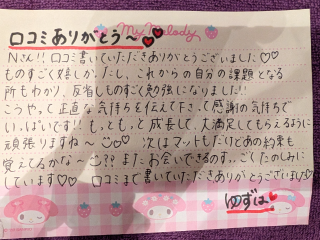 口コミありがとう〜
My Melody
Nさん!!口コミ書いていただきありがとうございました♡♡
ものすごく嬉しかったし、これからの自分の課題となる
所もわかり、反省しものすごく勉強になりました!!
こうやって正直な気持ちを伝えて下さって感謝の気持ちで
いっぱいです!!もっともっと成長して、大満足してもらえるように
頑張りますね〜 次はマットもだけどあの約束も
覚えてるかな〜??またお会いできるのすっごくたのしみに
しています♡♡ 口コミまで書いていただきありがとうございました♡
ゆずは♡